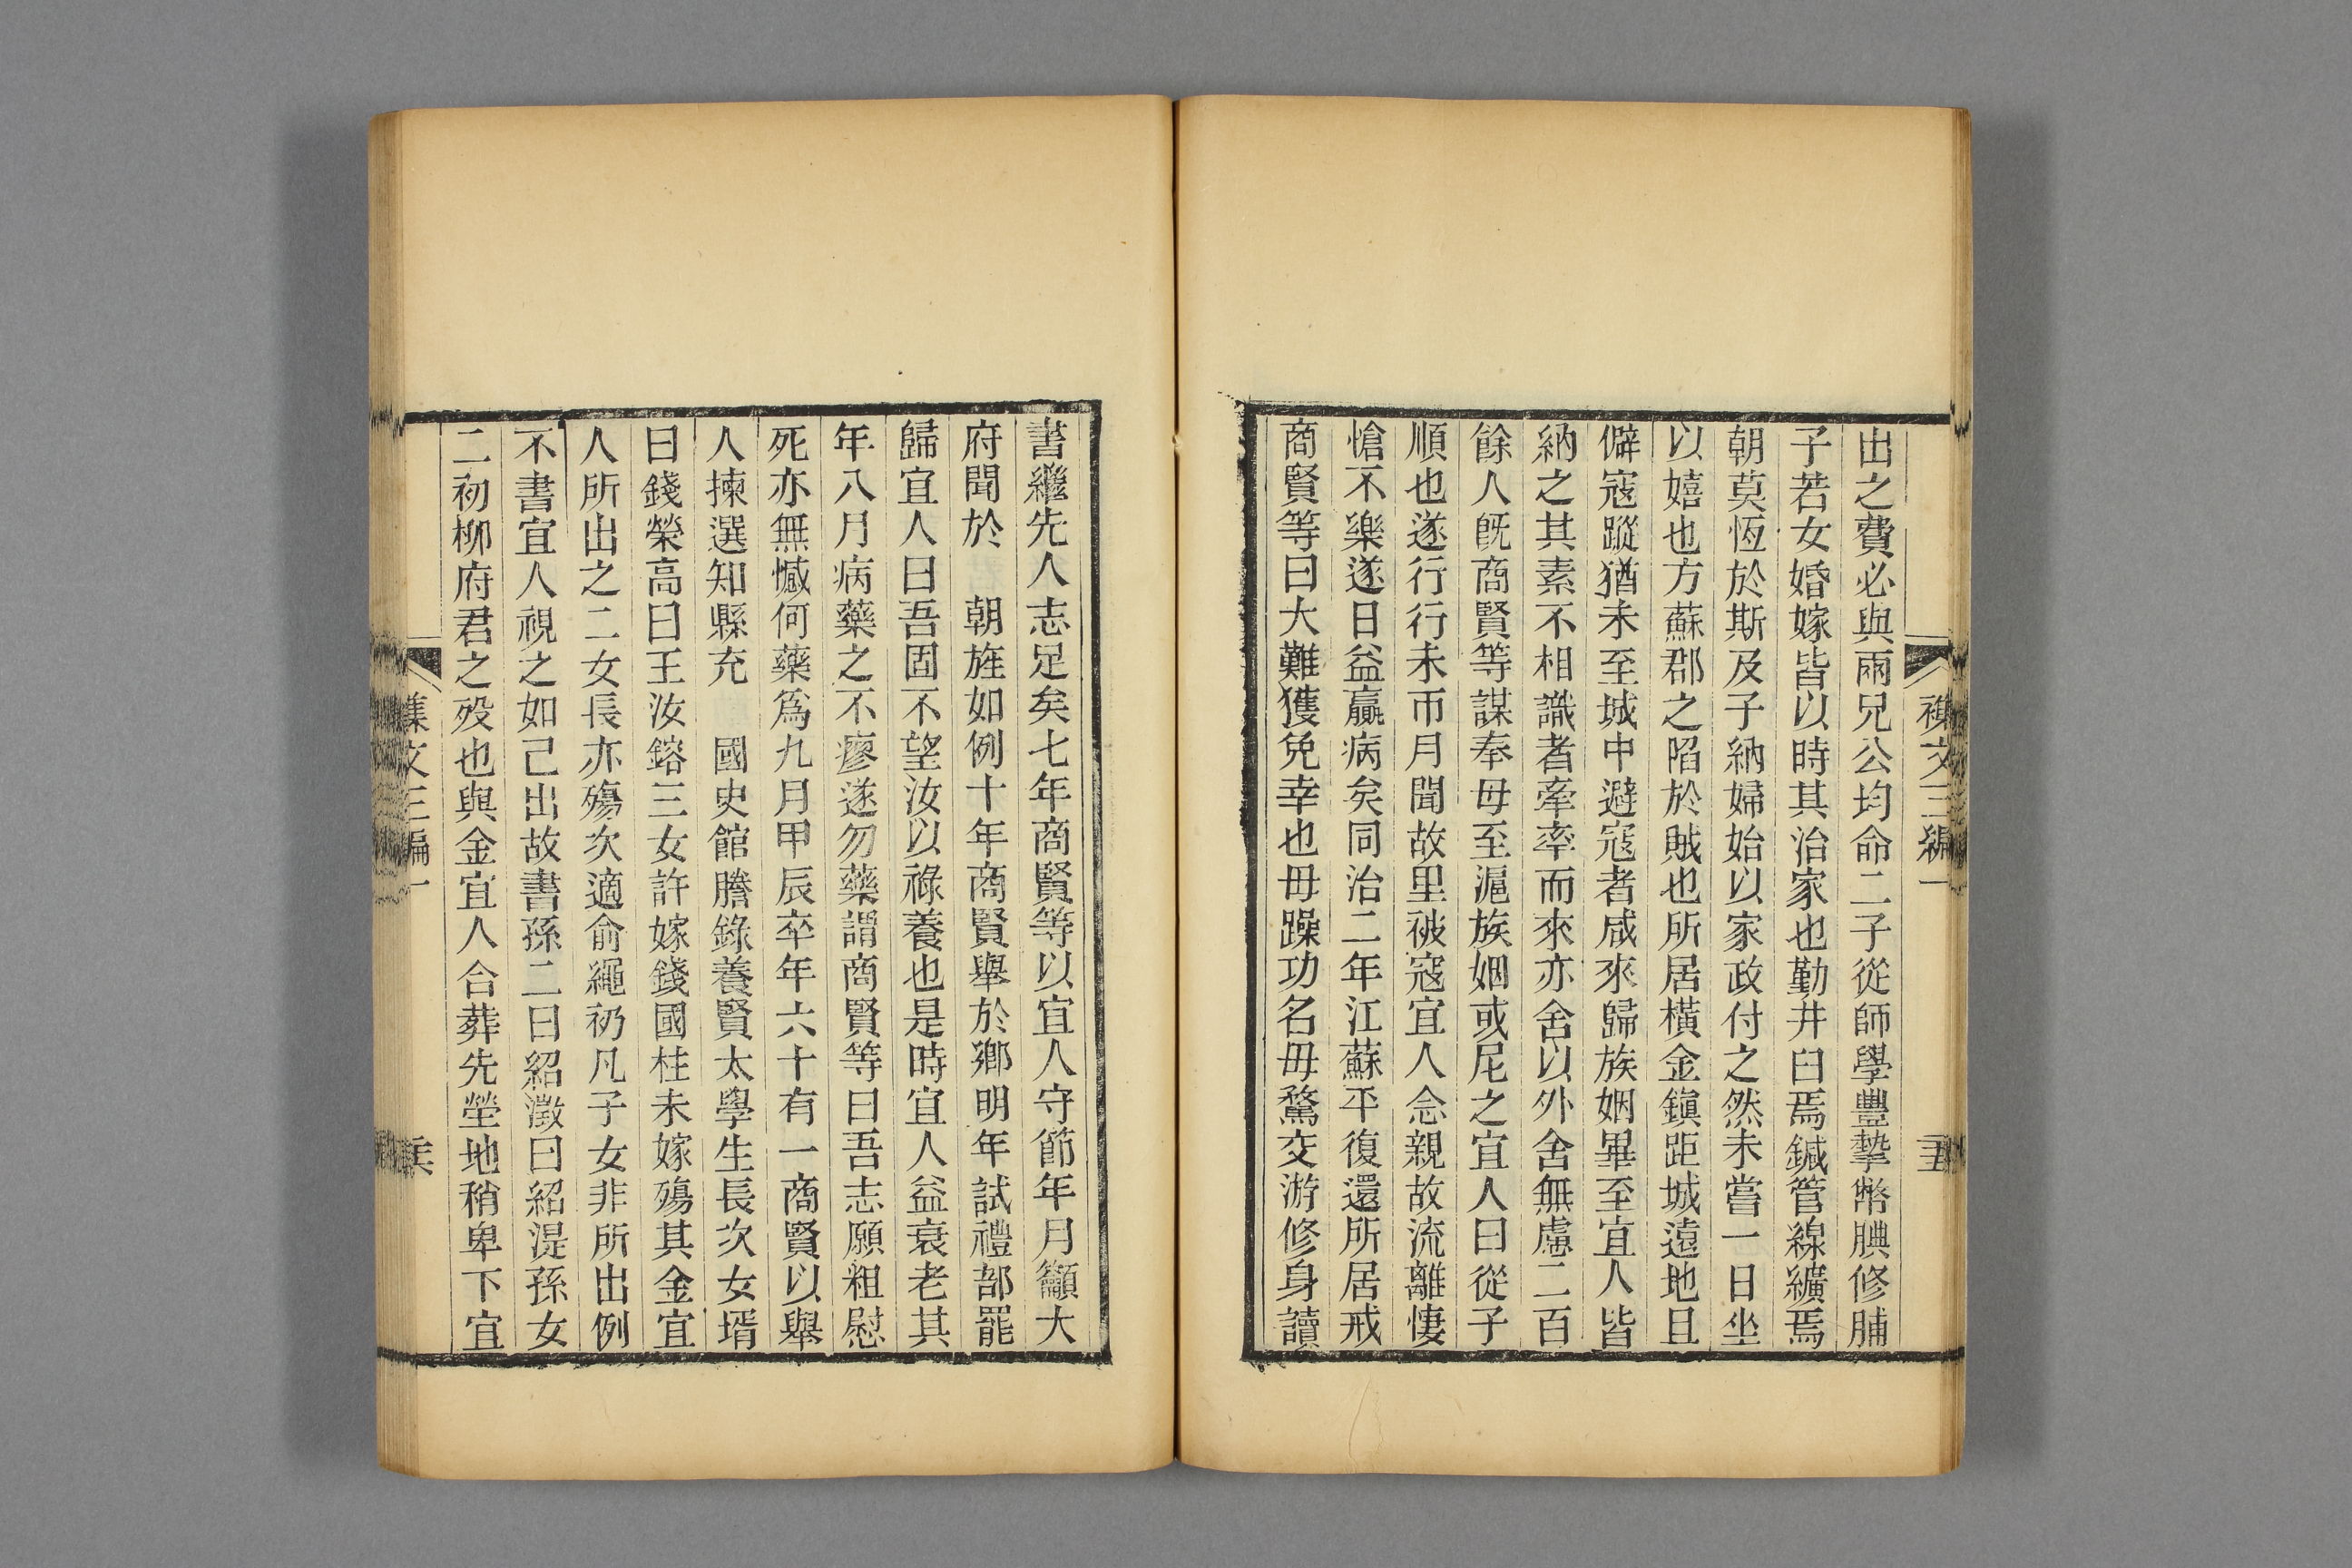 出之費必與兩兄公均命二子從師學豐摯幣腆修脯
子若女婚嫁皆以時其治家也勤井臼焉鍼管線纊焉
朝莫恆於斯及子納婦始以家政付之然未嘗一日坐
以嬉也方蘇郡之陷於賊也所居橫金鎭距城遠地且
僻寇蹤猶未至城中避寇者咸來歸族姻畢至宜人皆
納之其素不相識者牽率而來亦舍以外舍無慮二百
餘人旣商賢等謀奉母至滬族姻或尼之宜人曰從子
順也遂行行未帀月聞故里被寇宜人念親故流離悽
愴不樂遂日益羸病矣同治二年江蘇平復還所居戒
商賢等曰大難獲免幸也毋躁功名毋騖交游修身讀
書繼先人志足矣七年商賢等以宜人守節年月籲大
府聞於 朝旌如例十年商賢舉於鄉明年試禮部罷
歸宜人曰吾固不望汝以祿養也是時宜人益衰老其
年八月病藥之不瘳遂勿藥謂商賢等曰吾志願粗慰
死亦無憾何藥爲九月甲辰卒年六十有一商賢以舉
人揀選知縣充 國史館謄錄養賢太學生長次女壻
曰錢榮高曰王汝鎔三女許嫁錢國柱未嫁殤其金宜
人所出之二女長亦殤次適俞繩礽凡子女非所出例
不書宜人視之如己出故書孫二曰紹澂曰紹湜孫女
二初柳府君之歿也與金宜人合葬先塋地稍卑下宜